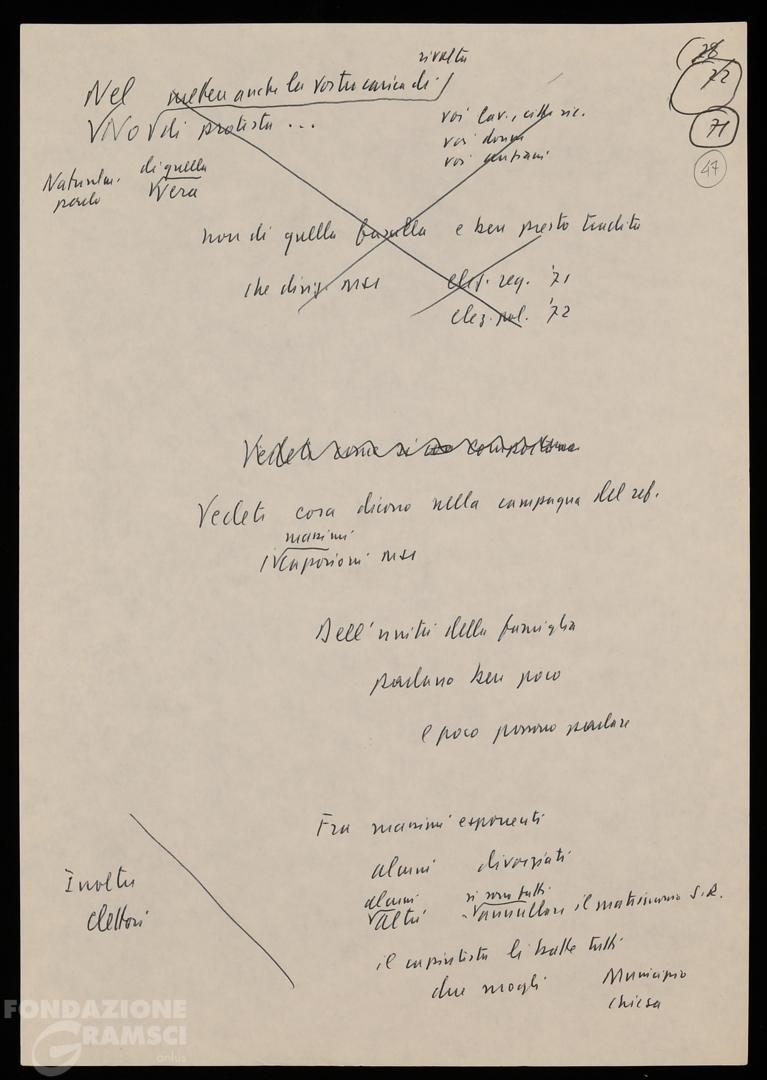 28
72
71
47
rivolta
Nel mettere anche la vostra carica di
NO di protesta ...
voi lav., cittadini
voi donne
voi
Natural. di quella
parlo vera
non di quella fasulla e ben presto tradita
che dirig. MSI elez. reg. '71
elez. pol. '72
Vedete come si comportano
Vedete cosa dicono nella campagna del ref.
massimi
i caporioni MSI
Dell'unità della famiglia
parlano ben poco
e poco possono parlare
Fra massimi esponenti
alcuni divorziati
Inoltre
elettori
alcuni si sono fatti
altri annullare il matrimonio S.R.
il capintesta li batte tutti
due mogli Municipio
chiesa
FONDAZIONE
GRAMSCI
onlus